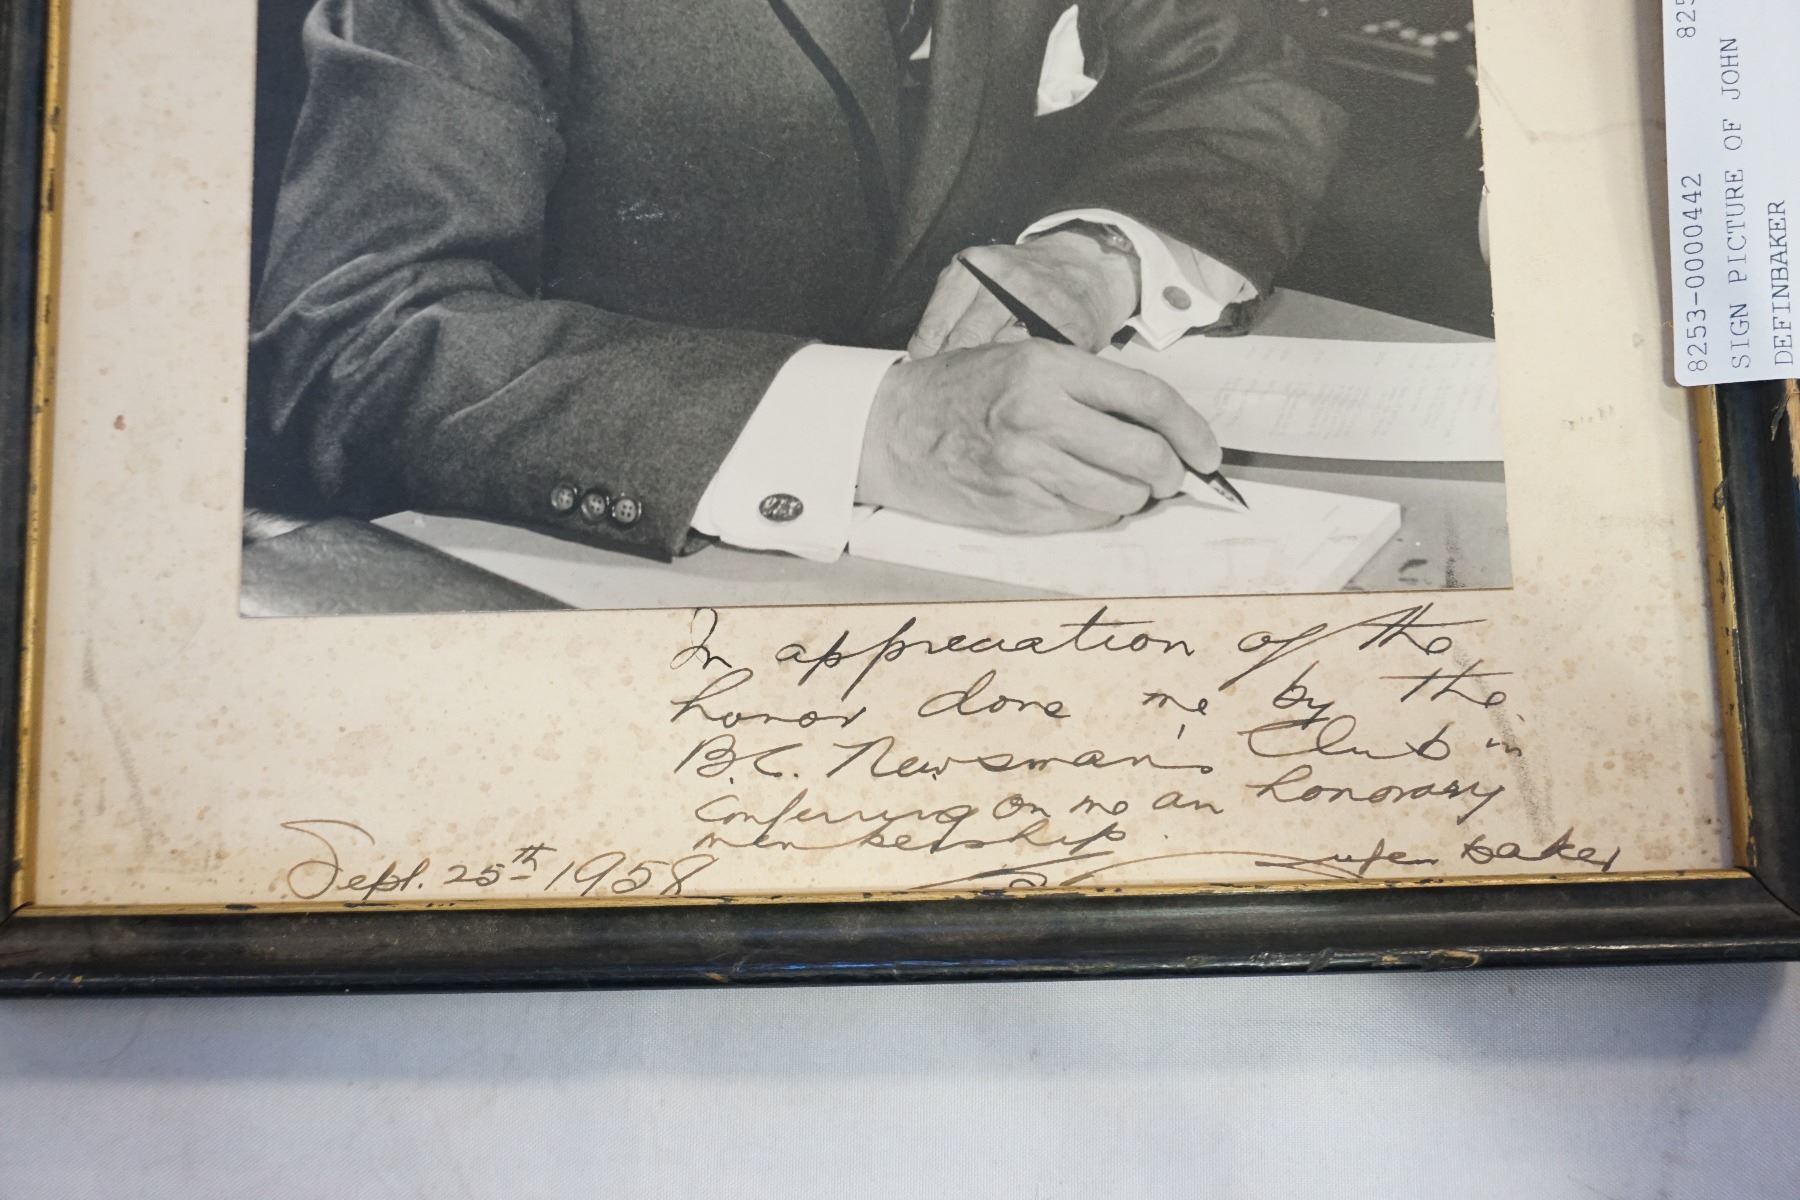 In appreciation of the
honor done me by the
B.C. Newsman's Club in
conferring on me an honorary
membership.
Sept. 25th 1958
8253-0000442
SIGN PICTURE OF JOHN
DEFINBAKER